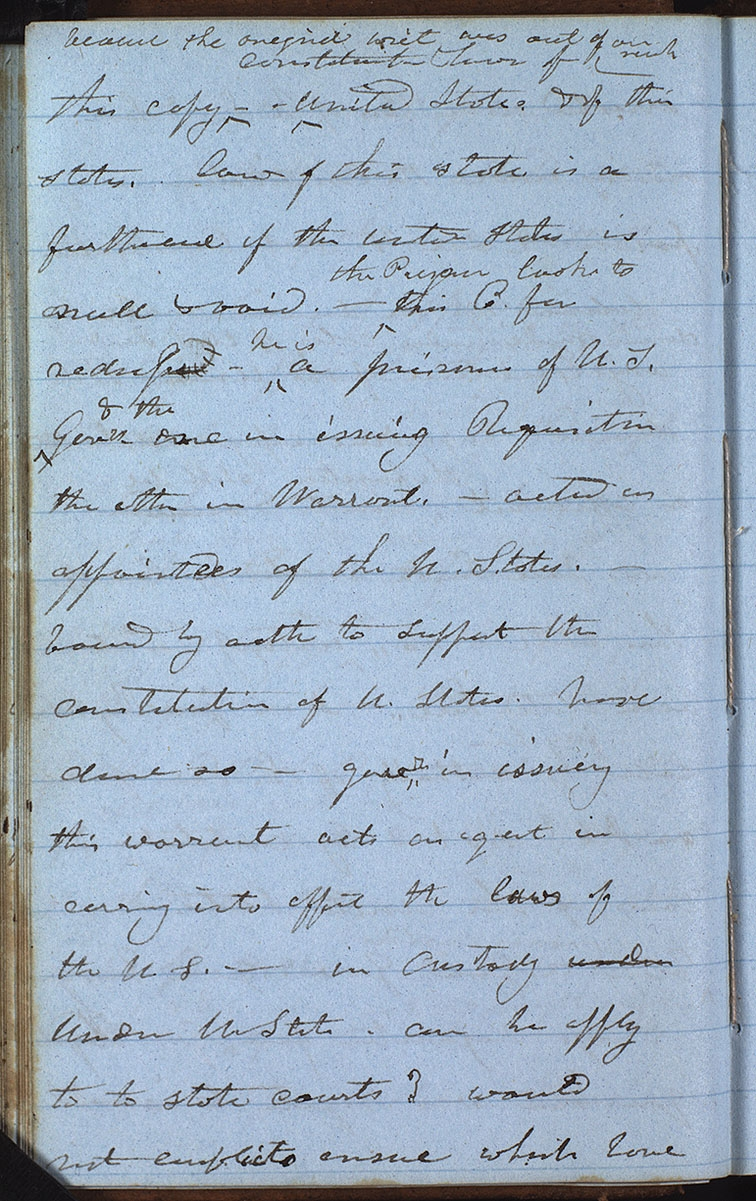 because the original writ was out of our reach
constitution laws of
this copy - - United States & of this
states. law of this state is a
furtherance of the United States is
null & void. - this C. for
the Prisoner looks to
redress - he is a prisoner of U.S.
& the
Gover one in issuing Requisition
the other in Warrant. - acted as
appointees of the U. States. -
bound by oath to support the
constitution of U. States. have
done so - gover in issuing
this warrant acts as agent in
carring into effect the laws of
the U S. - in Custody under
Under U State. can he apply
to to state courts? would
not conflicts ensue which have